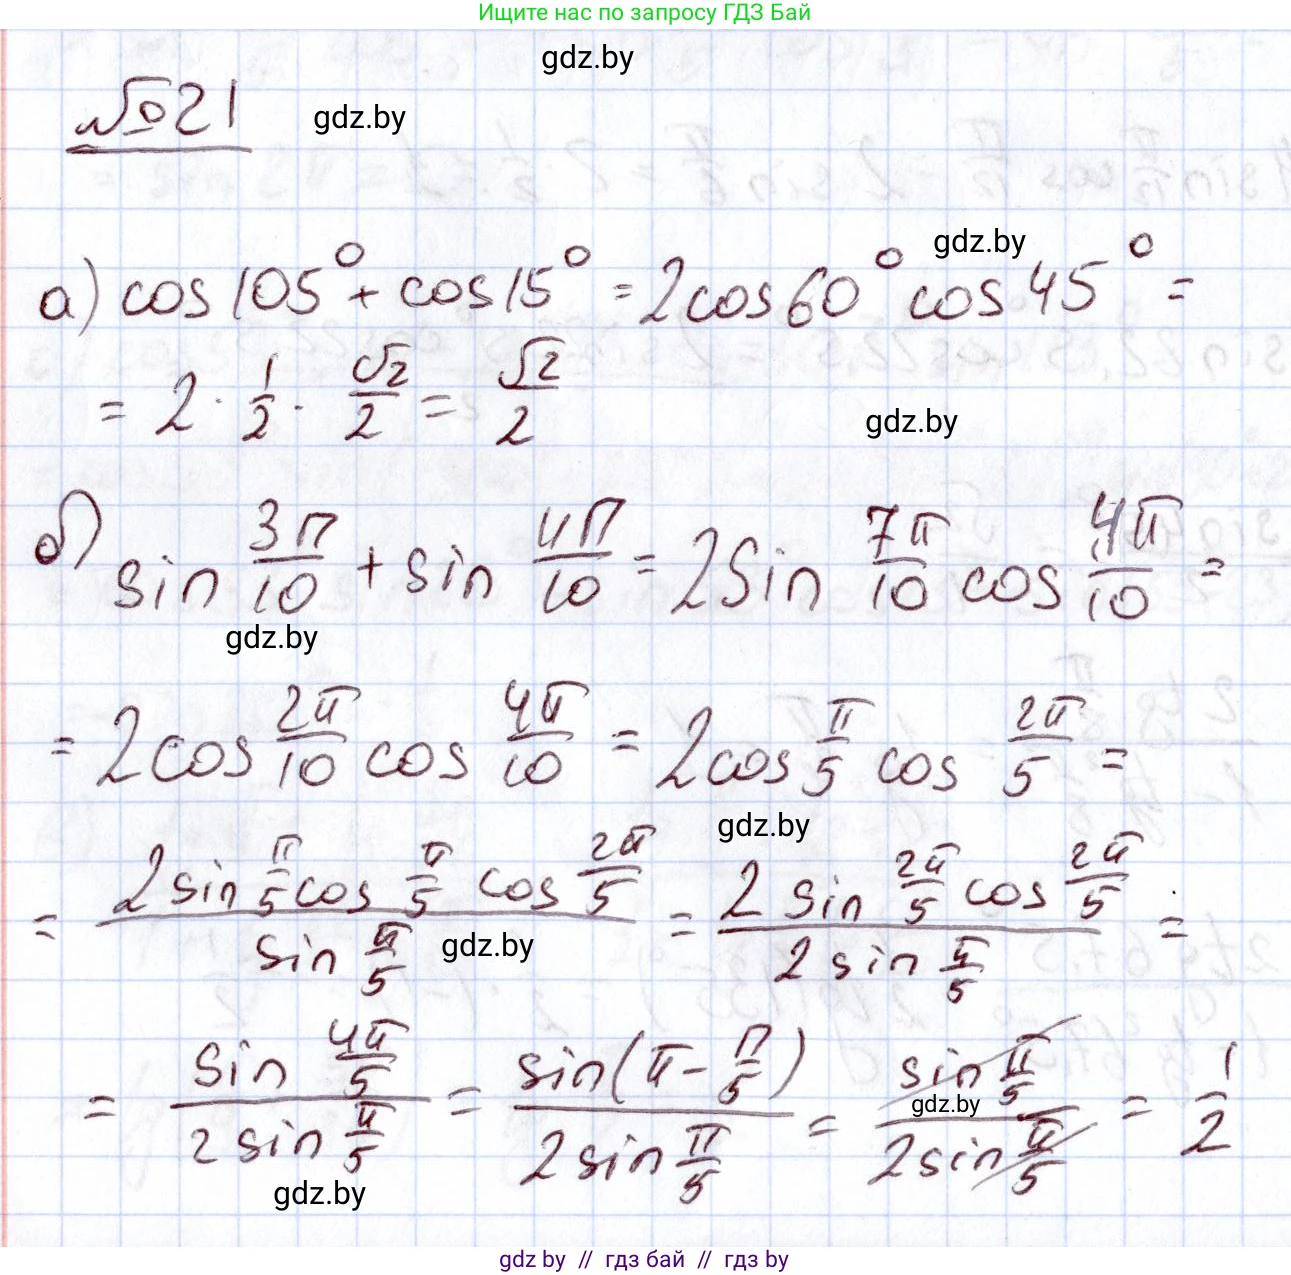 Ищите нас по запросу ГДЗ Бай
gdz.by
№21 gdz.by
gdz.by
а) cos 105° + cos 15° = 2cos 60° cos 45° =
= 2 · 1/2 · √2/2 = √2/2
gdz.by
б) sin 3π/10 + sin 4π/10 = 2 sin 7π/10 cos 4π/10 =
gdz.by
= 2 cos 2π/10 cos 4π/10 = 2 cos π/5 cos 2π/5 =
gdz.by
= (2 sin π/5 cos π/5 cos 2π/5)/(sin π/5) = (2 sin 2π/5 cos 2π/5)/(2 sin π/5) =
gdz.by
= (sin 4π/5)/(2 sin π/5) = (sin(π - π/5))/(2 sin π/5) = (sin π/5)/(2 sin π/5) = 1/2
gdz.by
gdz.by
gdz by // гдз бай // гдз by